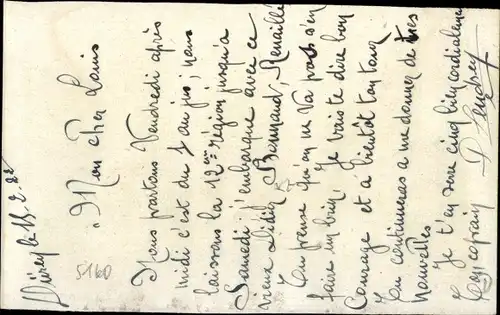 Düren le 15.2.22
Mon Cher Louis
Nous partons Vendredi après
midi c'est du jus; nous
laissons la 12ème région jusqu'à
Samedi j'embarque avec ce
vieux Didier, Bonnaud, Renaillé
Tu pense qu'on ne va pas s'en
faire un brin. Je vais te dire bon
Courage et à bientôt ton tour
Tu continueras a me donner de tes
nouvelles
Je t'en serre cinq bien cordialement
Ton copain
5160